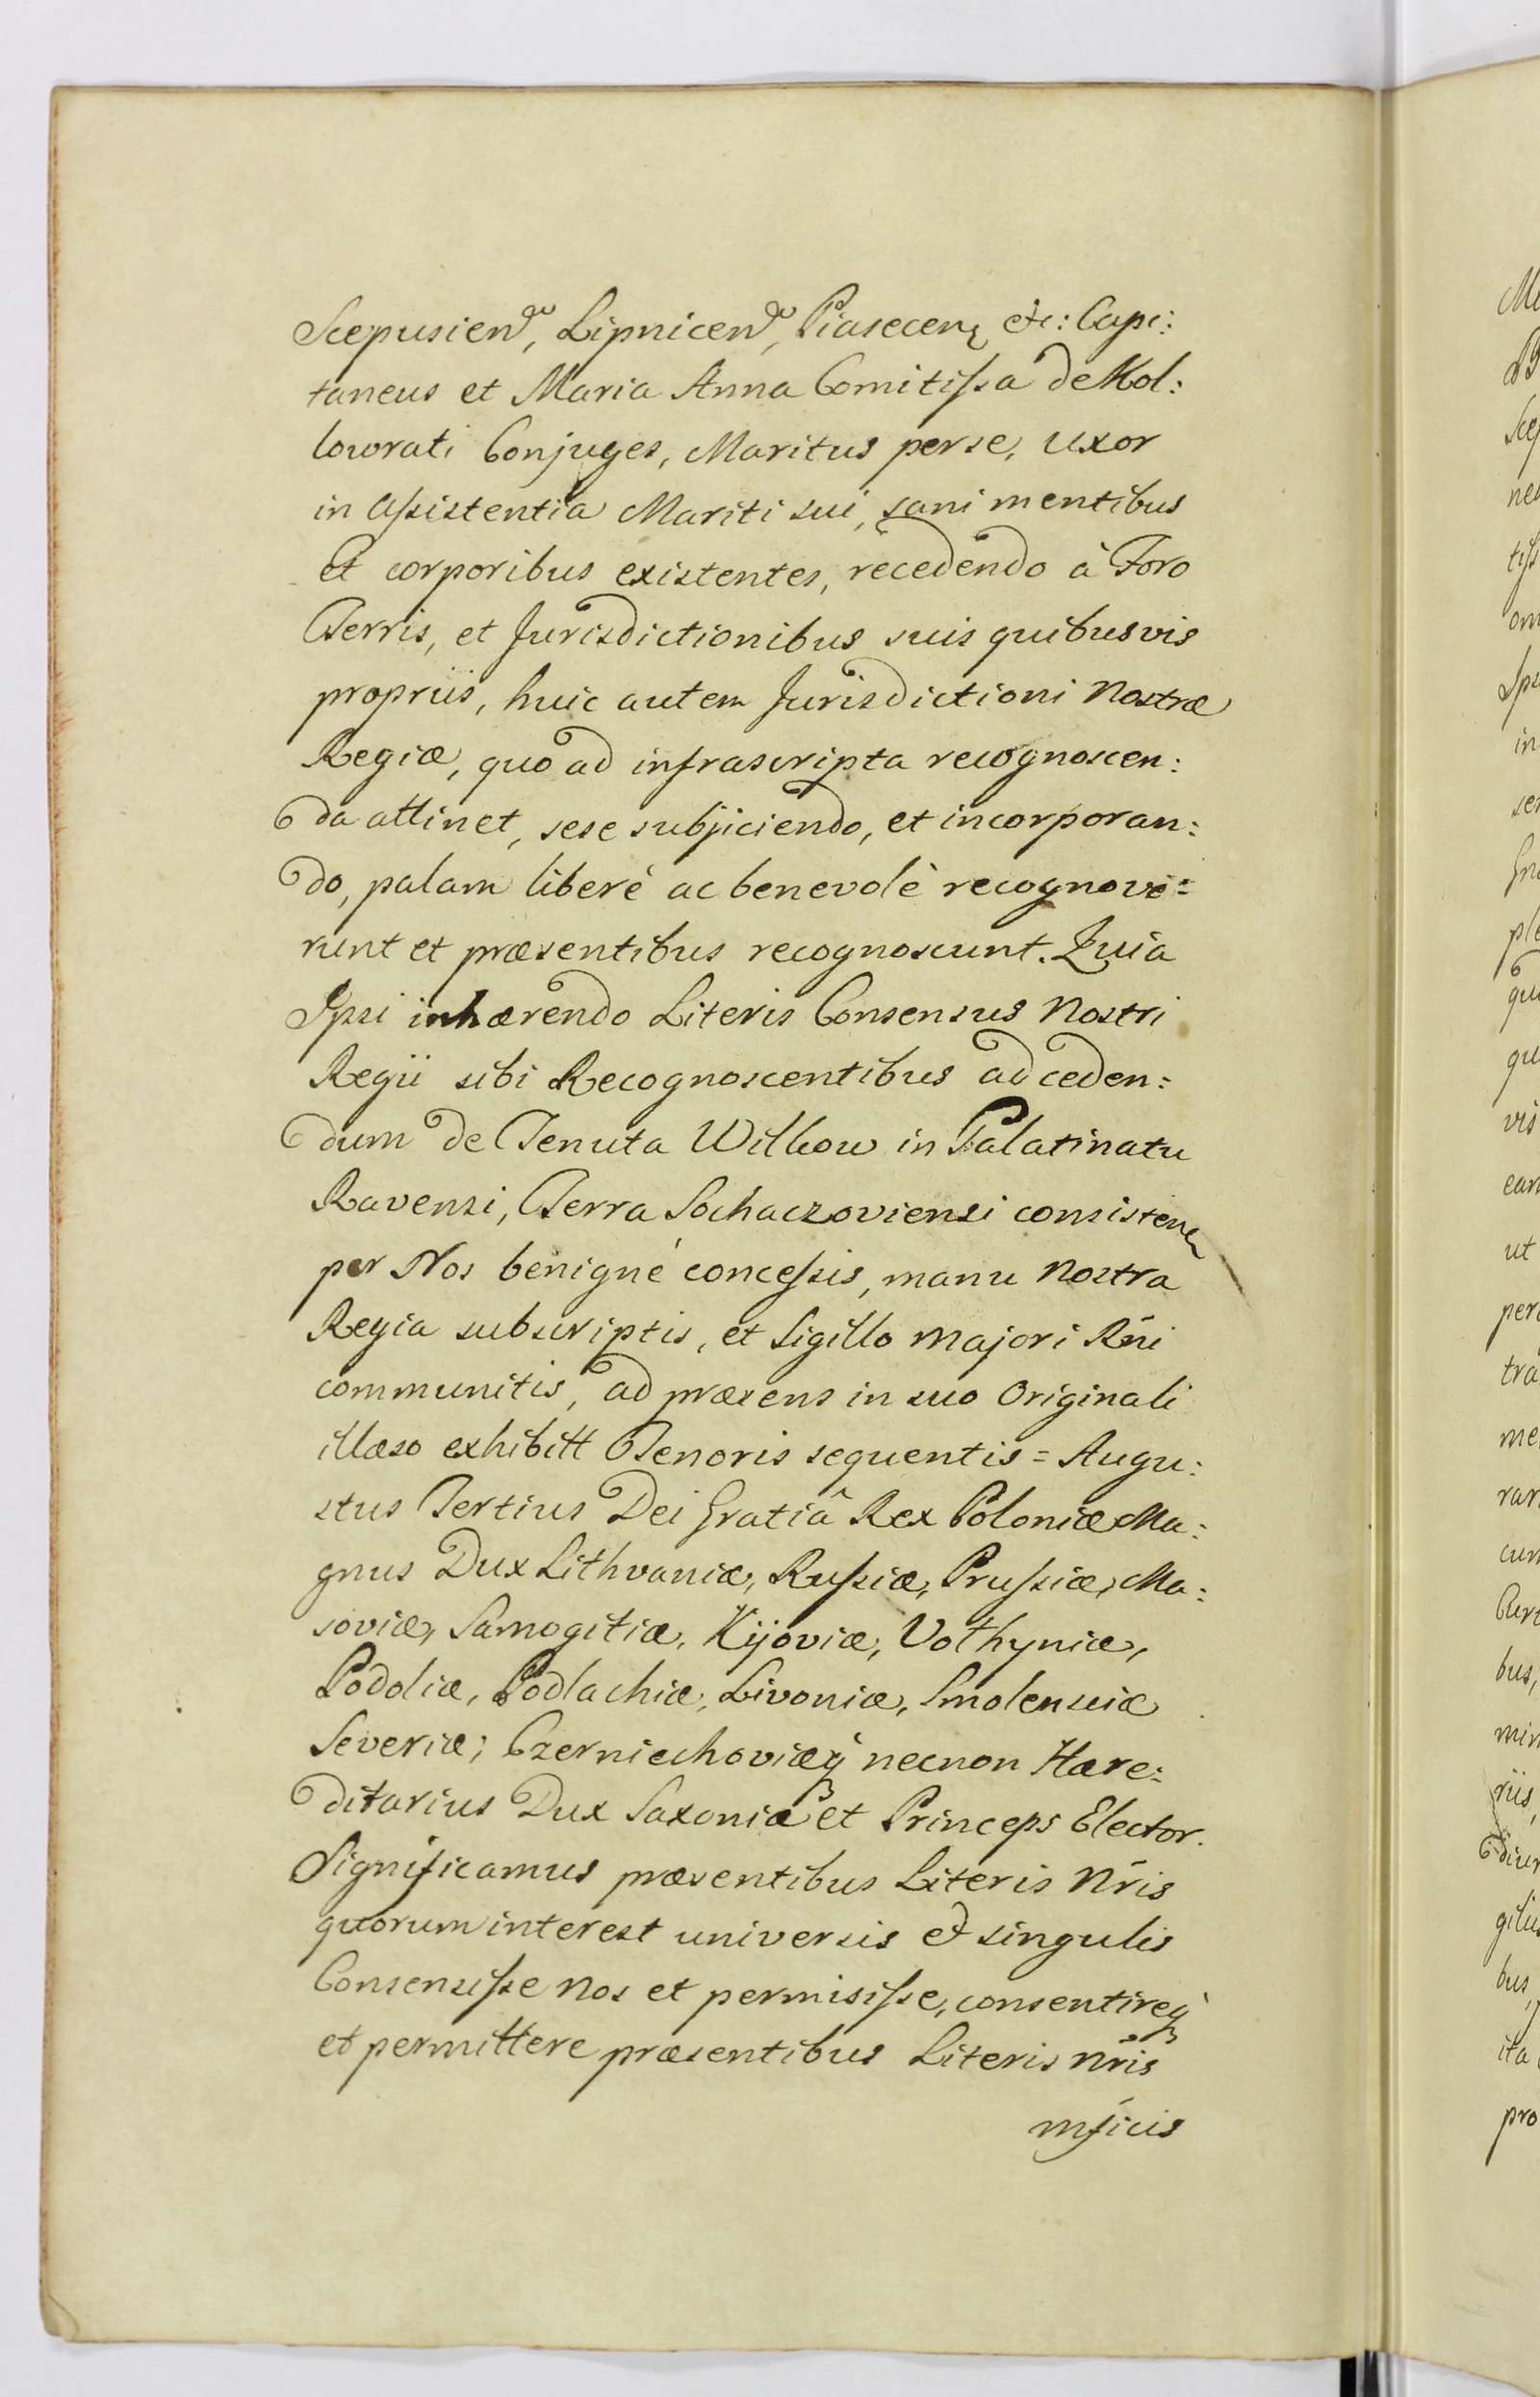 Scepusien, Lipnicen, Piasecen etc: Capi:
taneus et Maria Anna Comitiſsa de Kol:
lowrati Conjuges, Maritus per se, Uxor
in Aſsistentia Mariti sui, sani mentibus
et corporibus existentes, recedendo à Foro
Terris, et Jurisdictionibus suis quibusvis
propriis, huic autem Jurisdictioni Nostræ
Regiæ, quo ad infrascripta recognoscen:
da attinet, sese subjiciendo, et incorporan:
do, palam liberè ac benevolè recognove:
runt et præsentibus recognoscunt. Quia
Ipsi inhærendo Literis Consensus Nostri
Regii sibi Recognoscentibus ad ceden:
dum de Tenuta Wilkow in Palatinatu
Ravensi, Terra Sochaczoviensi consisten
per Nos benignè conceſsis, manu Nostra
Regia subscriptis, et Sigillo Majori Rñi
communitis, ad præsens in suo Originali
illæso exhibitt Tenoris sequentis = Augu:
stus Tertius Dei Gratiâ Rex Poloniæ Ma:
gnus Dux Lithvaniæ, Ruſsiæ, Pruſsiæ, Ma:
soviæ, Samogitiæ, Kijoviæ, Volhyniæ,
Podoliæ, Podlachiæ, Livoniæ, Smolensciæ
Severiæ, Czerniechoviæq̃ necnon Hære:
ditarius Dux Saxoniæ et Princeps Elector.
Significamus præsentibus Literis Nr̃is
quorum interest universis et singulis
Consensiſse Nos et permisiſse, consentireq̃
et permittere præsentibus Literis nr̃is
mficis